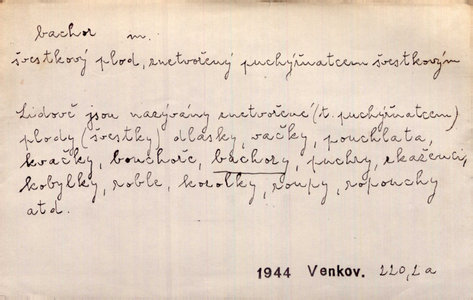 bachor m.
švestkový plod, znetvořený puchýřnatcem švestkovým
Lidově jsou nazývány znetvořené (t. puchýřnatcem)
plody (švestky) dlasky, vačky, pouchlata,
kvačky, bouchoře, bachory, puchry, zkaženci,
kobylky, roble, korolky, roupy, ropouchy
atd.
1944 Venkov. 220, 2a